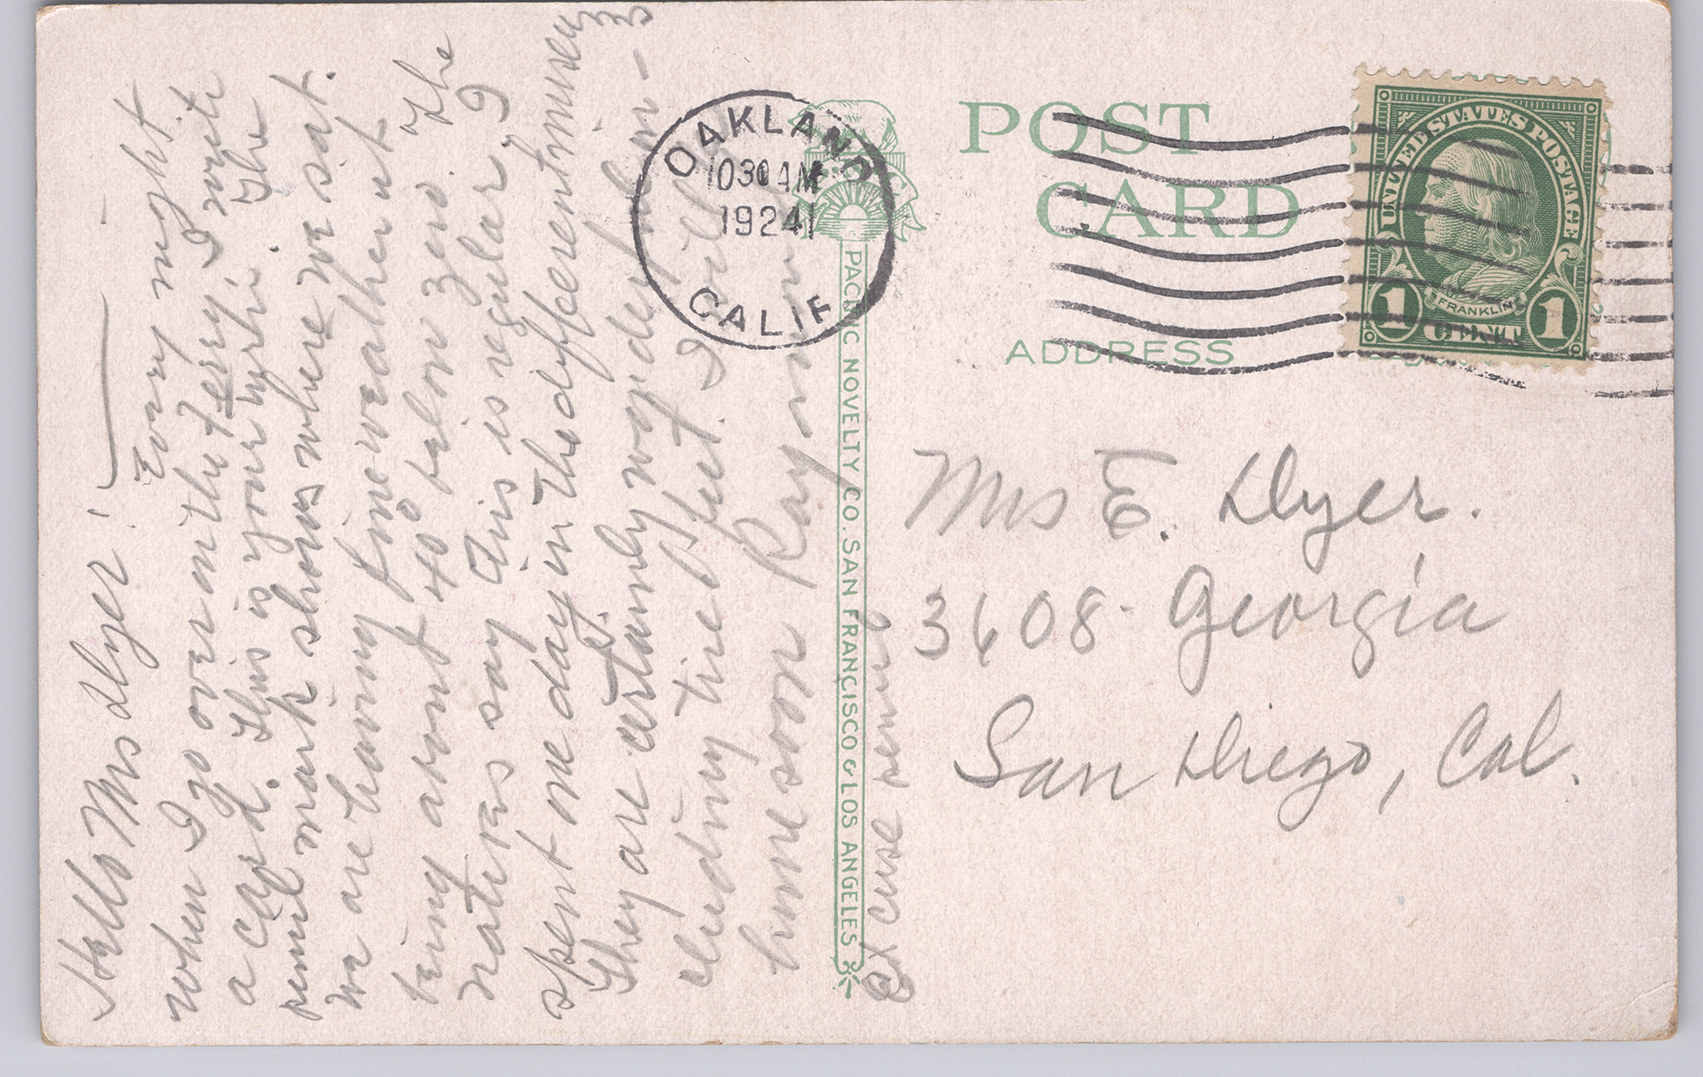 Hello Mrs Dyer! Every night
when I go over on the ferry I write
a card. This is your night. The
pencil mark shows where we sat.
We are having fine weather it
being about 40° below zero. The
natives say this is regular. I
spent one day in the different museums
They are certainly wonderful in-
cluding tired feet. I will
home soon Raymond
Excuse pencil
OAKLAND
1030 AM
1924
CALIF
PACIFIC NOVELTY CO. SAN FRANCISCO & LOS ANGELES
POST
CARD
ADDRESS
UNITED STATES POSTAGE
FRANKLIN
1 CENT 1
Mrs E. Dyer.
3608 Georgia
San Diego, Cal.